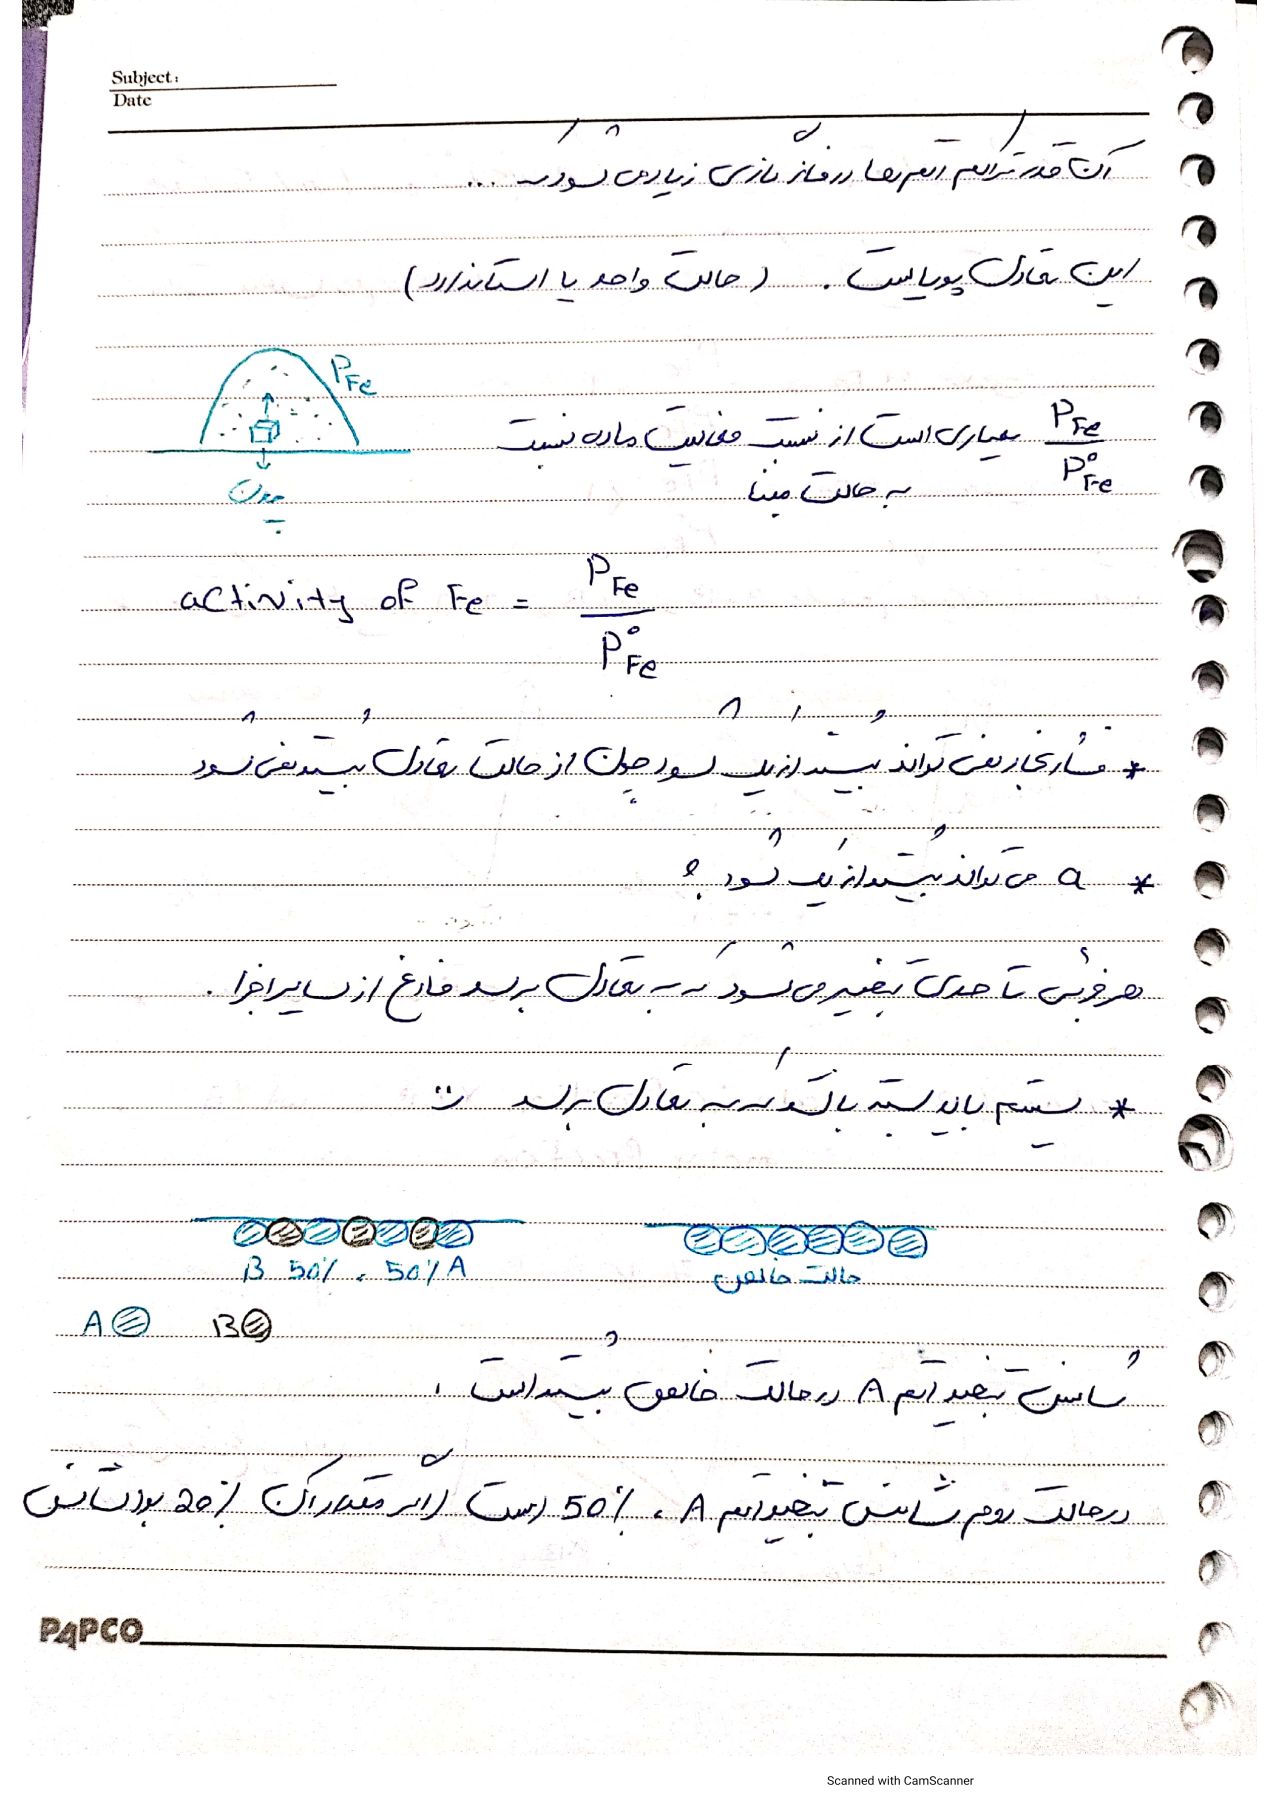 Subject:
Date
آن قدر تراکم اتم ها در فاز گازی زیاد می شود که ...
این تعادل پویاست . (حالت واحد یا استاندارد)
P Fe
چدن
P Fe / P° Fe معیاری است از نسبت فعالیت ماده نسبت
به حالت مبنا
activity of Fe = P Fe / P° Fe
* فشار بخار نمی تواند بیشتر از یک شود چون از حالت تعادل بیشتر نمی شود
* a می تواند بیشتر از یک شود ؟
هر جزئی تا حدی تبخیر می شود که به تعادل برسد فارغ از سایر اجزا .
* سیستم باید بسته باشد که به تعادل برسد
حالت خالص
B 50% . 50% A
A B
شانس تبخیر اتم A در حالت خالص بیشتر است .
در حالت دوم شانس تبخیر اتم A ، 50% است (اگر مقدار آن 20% بود شانس
PAPCO
Scanned with CamScanner